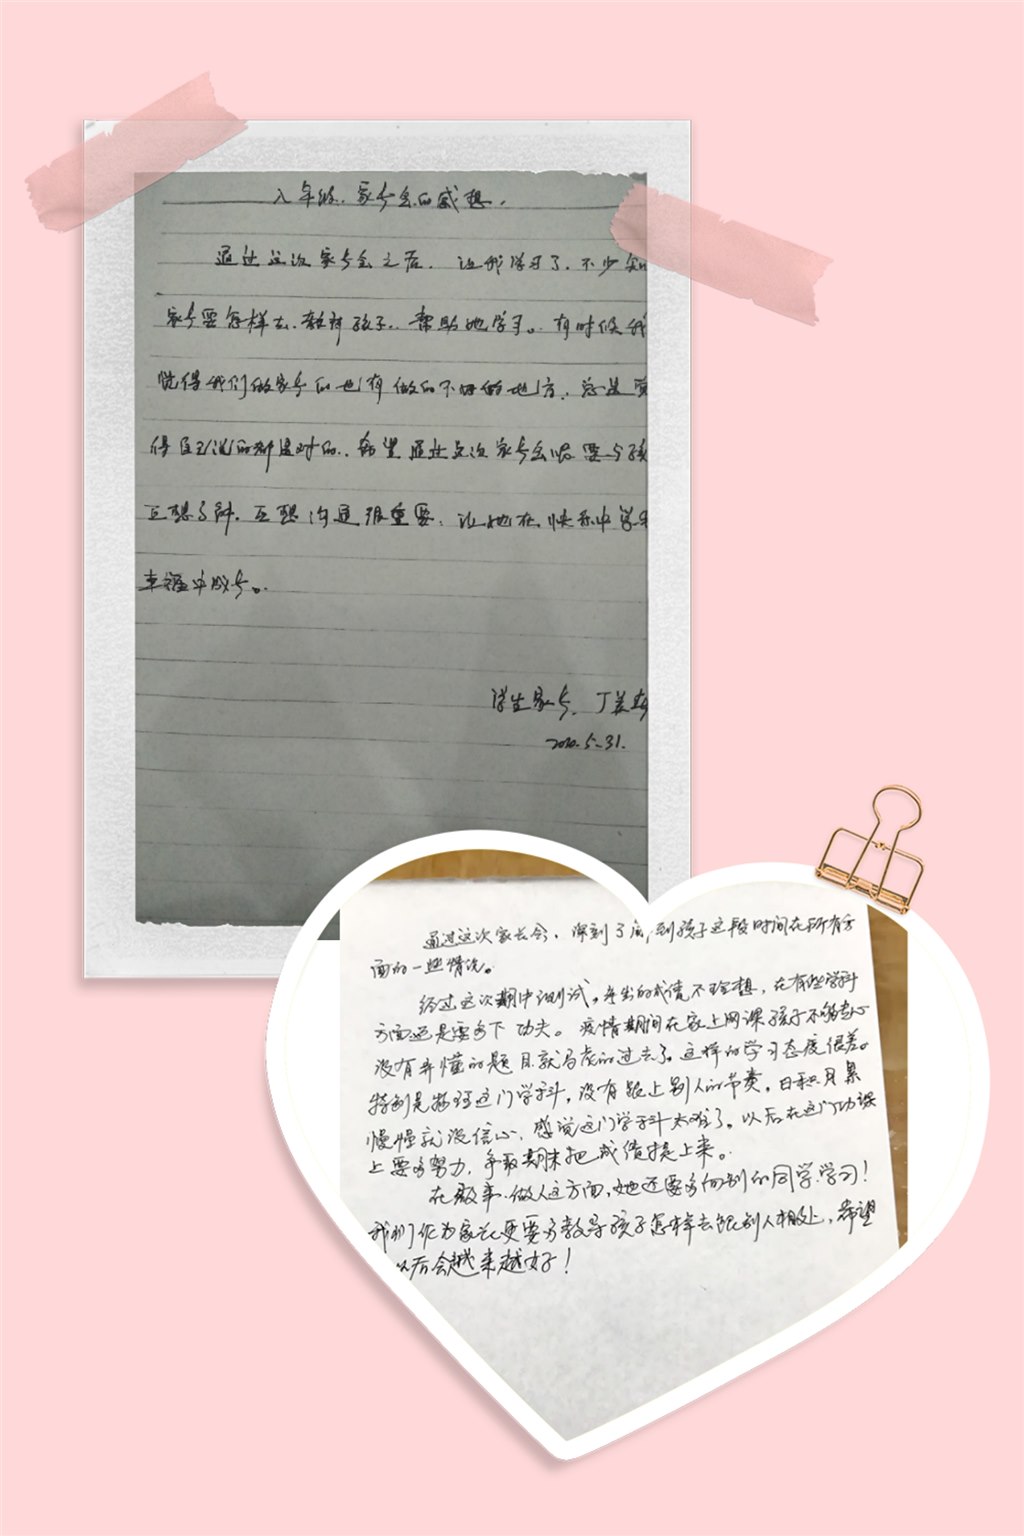 八年级家长会的感想。
通过这次家长会之后，让我学习了，不少知
家长要怎样去教育孩子，帮助她学习。有时候我
觉得我们做家长的也有做的不好的地方，总是觉
得自己说的都是对的，希望通过这次家长会后要与孩
互想了解，互想沟通很重要，让她在快乐中学习
幸福中成长。
学生家长，丁美
2020.5.31.
通过这次家长会，深刻了解到孩子这段时间在所有方
面的一些情况。
经过这次期中测试，考出的成绩不理想，在有些学科
方面还是要多下功夫。疫情期间在家上网课孩子不够专心
没有弄懂的题目就马虎的过去了。这样的学习态度很差。
特别是物理这门学科，没有跟上别人的节奏，日积月累
慢慢就没信心，感觉这门学科太难了。以后在这门功课
上要多努力，争取期末把成绩提上来。
在做事、做人这方面，她还要多向别的同学学习！
我们作为家长更要多教导孩子怎样去跟别人相处，希望
以后会越来越好！